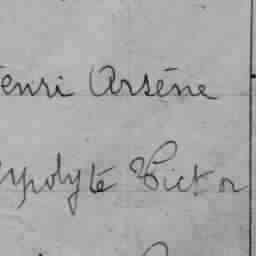 enri Arsène
ypolyte Victor